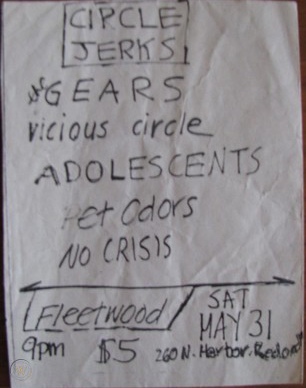 CIRCLE
JERKS
GEARS
vicious circle
ADOLESCENTS
Pet Odors
NO CRISIS
Fleetwood
SAT
MAY 31
9pm $5 260 N. Harbor. Redond